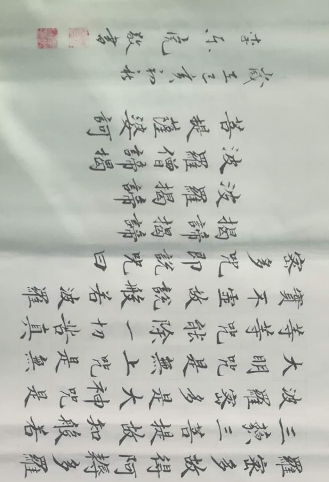 羅密多故得阿耨多羅
三藐三菩提故知般若
波羅密多是大神咒是
大明咒是無上咒是無
等等咒能除一切苦真
實不虛故說般若波羅
密多咒即說咒曰
揭諦揭諦
波羅揭諦
波羅僧揭諦
菩提薩婆訶
歲在己亥初秋
李樂敬書